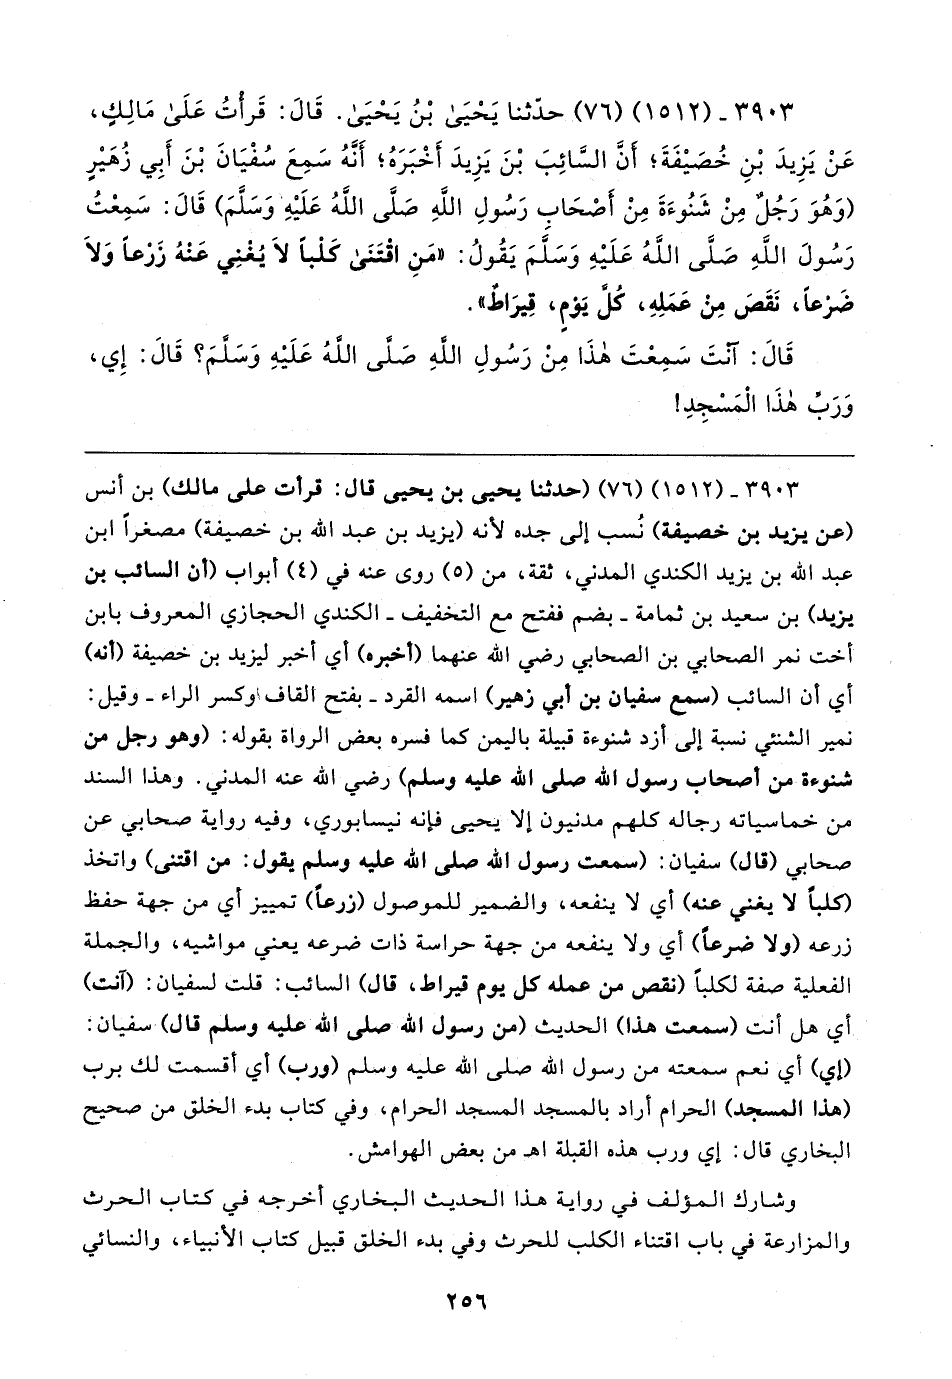 ٣٩٠٣ ـ (١٥١٢) (٧٦) حدّثنا يَحْيَىٰ بْنُ يَحْيَىٰ. قَالَ: قَرَأْتُ عَلَىٰ مَالِكٍ،
عَنْ يَزِيدَ بْنِ خُصَيْفَةَ؛ أَنَّ السَّائِبَ بْنَ يَزِيدَ أَخْبَرَهُ؛ أَنَّهُ سَمِعَ سُفْيَانَ بْنَ أَبِي زُهَيْرٍ
(وَهُوَ رَجُلٌ مِنْ شَنُوءَةَ مِنْ أَصْحَابِ رَسُولِ اللَّهِ صَلَّى اللَّهُ عَلَيْهِ وَسَلَّمَ) قَالَ: سَمِعْتُ
رَسُولَ اللَّهِ صَلَّى اللَّهُ عَلَيْهِ وَسَلَّمَ يَقُولُ: «مَنِ اقْتَنَىٰ كَلْباً لاَ يُغْنِي عَنْهُ زَرْعاً وَلاَ
ضَرْعاً، نَقَصَ مِنْ عَمَلِهِ، كُلَّ يَوْمٍ، قِيرَاطٌ».
قَالَ: آنْتَ سَمِعْتَ هٰذَا مِنْ رَسُولِ اللَّهِ صَلَّى اللَّهُ عَلَيْهِ وَسَلَّمَ؟ قَالَ: إِي،
وَرَبِّ هٰذَا الْمَسْجِدِ!
٣٩٠٣ ـ (١٥١٢) (٧٦) (حدثنا يحيى بن يحيى قال: قرأت على مالك) بن أنس
(عن يزيد بن خصيفة) نُسب إلى جده لأنه (يزيد بن عبد الله بن خصيفة) مصغراً ابن
عبد الله بن يزيد الكندي المدني، ثقة، من (٥) روى عنه في (٤) أبواب (أن السائب بن
يزيد) بن سعيد بن ثمامة ـ بضم ففتح مع التخفيف ـ الكندي الحجازي المعروف بابن
أخت نمر الصحابي بن الصحابي رضي الله عنهما (أخبره) أي أخبر ليزيد بن خصيفة (أنه)
أي أن السائب (سمع سفيان بن أبي زهير) اسمه القرد ـ بفتح القاف وكسر الراء ـ وقيل:
نمير الشنئي نسبة إلى أزد شنوءة قبيلة باليمن كما فسره بعض الرواة بقوله: (وهو رجل من
شنوءة من أصحاب رسول الله صلى الله عليه وسلم) رضي الله عنه المدني. وهذا السند
من خماسياته رجاله كلهم مدنيون إلا يحيى فإنه نيسابوري، وفيه رواية صحابي عن
صحابي (قال) سفيان: (سمعت رسول الله صلى الله عليه وسلم يقول: من اقتنى) واتخذ
(كلباً لا يغني عنه) أي لا ينفعه، والضمير للموصول (زرعاً) تمييز أي من جهة حفظ
زرعه (ولا ضرعاً) أي ولا ينفعه من جهة حراسة ذات ضرعه يعني مواشيه، والجملة
الفعلية صفة لكلباً (نقص من عمله كل يوم قيراط، قال) السائب: قلت لسفيان: (آنت)
أي هل أنت (سمعت هذا) الحديث (من رسول الله صلى الله عليه وسلم قال) سفيان:
(إي) أي نعم سمعته من رسول الله صلى الله عليه وسلم (ورب) أي أقسمت لك برب
(هذا المسجد) الحرام أراد بالمسجد المسجد الحرام، وفي كتاب بدء الخلق من صحيح
البخاري قال: إي ورب هذه القبلة اهـ من بعض الهوامش.
وشارك المؤلف في رواية هذا الحديث البخاري أخرجه في كتاب الحرث
والمزارعة في باب اقتناء الكلب للحرث وفي بدء الخلق قبيل كتاب الأنبياء، والنسائي
٢٥٦